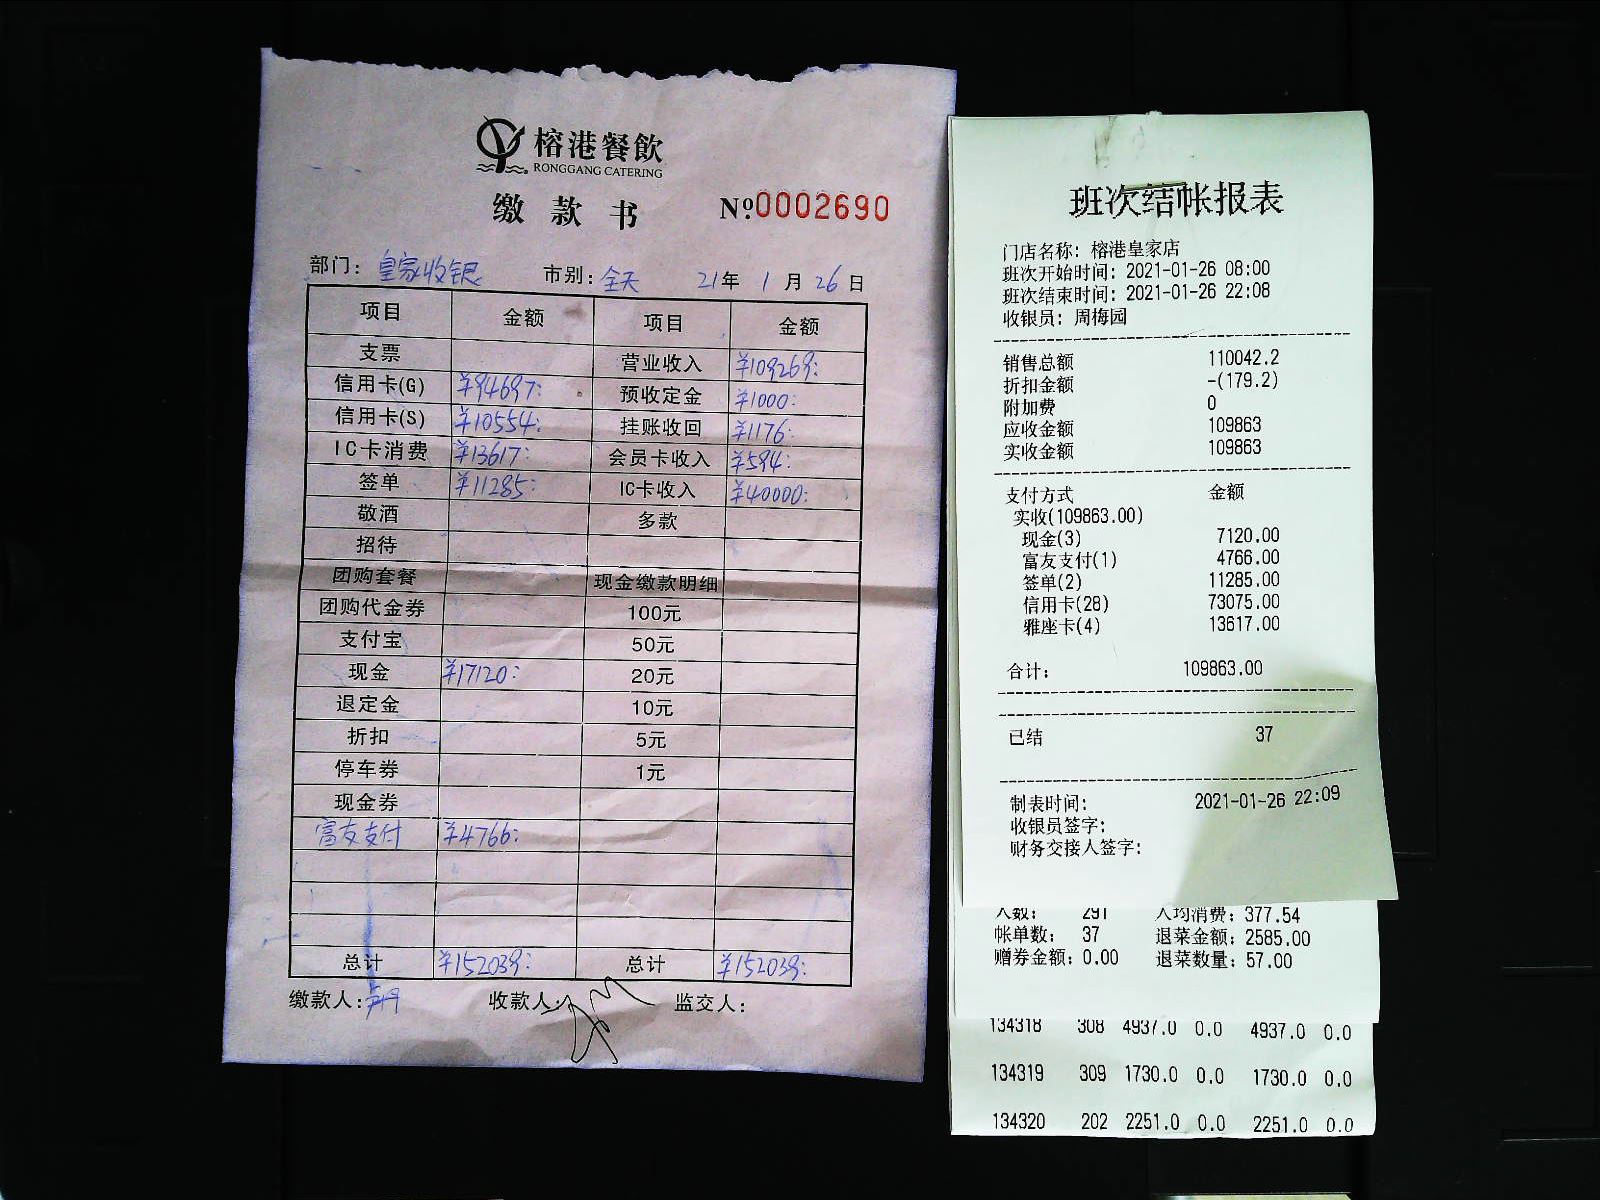 榕港餐飲
RONGGANG CATERING
缴款书 №0002690
部门：皇家收银 市别：全天 21年1月26日
项目 金额 项目 金额
支票 营业收入 ¥109269:
信用卡(G) ¥94697: 预收定金 ¥1000:
信用卡(S) ¥10554: 挂账收回 ¥1176:
IC卡消费 ¥13617: 会员卡收入 ¥594:
签单 ¥11285: IC卡收入 ¥40000:
敬酒 多款
招待
团购套餐 现金缴款明细
团购代金券 100元
支付宝 50元
现金 ¥17120: 20元
退定金 10元
折扣 5元
停车券 1元
现金券
富友支付 ¥4766:
总计 ¥152039: 总计 ¥152039:
缴款人: 收款人: 监交人:
班次结帐报表
门店名称: 榕港皇家店
班次开始时间: 2021-01-26 08:00
班次结束时间: 2021-01-26 22:08
收银员: 周梅园
销售总额 110042.2
折扣金额 -(179.2)
附加费 0
应收金额 109863
实收金额 109863
支付方式 金额
实收(109863.00)
现金(3) 7120.00
富友支付(1) 4766.00
签单(2) 11285.00
信用卡(28) 73075.00
雅座卡(4) 13617.00
合计: 109863.00
已结 37
制表时间: 2021-01-26 22:09
收银员签字:
财务交接人签字:
人数: 291 人均消费: 377.54
帐单数: 37 退菜金额: 2585.00
赠券金额: 0.00 退菜数量: 57.00
134318 308 4937.0 0.0 4937.0 0.0
134319 309 1730.0 0.0 1730.0 0.0
134320 202 2251.0 0.0 2251.0 0.0